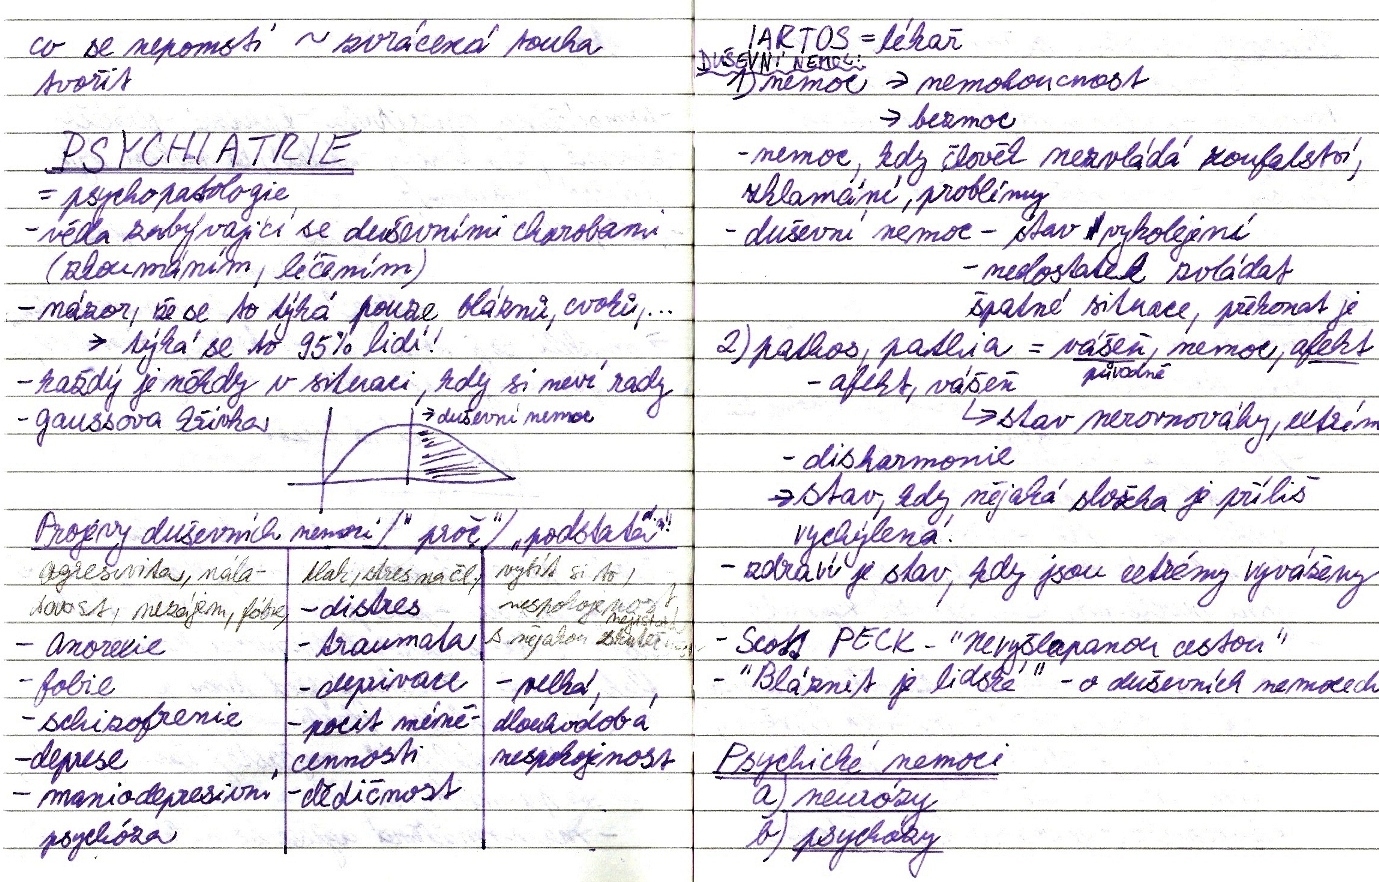 co se nepomstí ~ zvrácená touha
tvořit
PSYCHIATRIE
= psychopatologie
- věda zabývající se duševními chorobami
(zkoumáním, léčením)
- názor, že se to týká pouze bláznů, cvoků, ...
→ týká se to 95% lidí!
- každý je někdy v situaci, kdy si neví rady
- gaussova křivka
→ duševní nemoc
Projevy duševních nemocí / "proč" / "podstata"
agresivita, nála- tlak, stres na čl, vybít si to,
dovost, nezájem, fobie, - distres nespokojenost,
- anorexie - traumata s nějakou
- fobie - deprivace - velká,
- schizofrenie - pocit méně- dlouhodobá
- deprese cennosti nespokojenost
- maniodepresivní - dědičnost
psychóza
IARTOS = lékař
DUŠEVNÍ NEMOCI:
1) nemoc → nemohoucnost
→ bezmoc
- nemoc, kdy člověk nezvládá zoufalství,
zklamání, problémy
- duševní nemoc - stav vykolejení
- nedostatek zvládat
špatné situace, překonat je
2) pathos, pathia = vášeň, nemoc, afekt
původně
- afekt, vášeň
↳ stav nerovnováhy, extrém
- disharmonie
→ stav, kdy nějaká složka je příliš
vychýlená!
- zdraví je stav, kdy jsou extrémy vyváženy
- Scott PECK - "Nevyšlapanou cestou"
- "Bláznit je lidské" - o duševních nemocech
Psychické nemoci
a) neurózy
b) psychózy